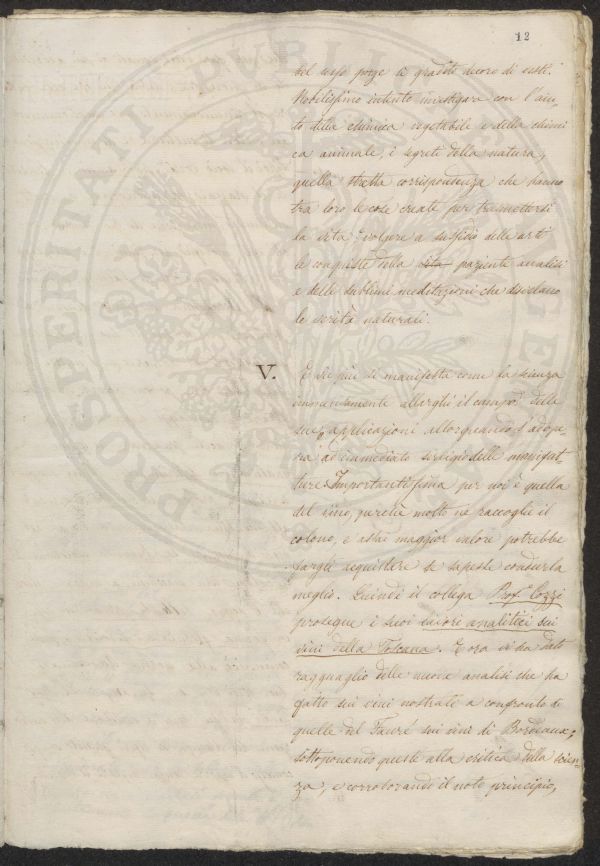 12
del corpo porge il gradito decoro di vesti.
Nobilissimo intento investigare con l'aiu-
to della chimica vegetabile e della chimi
ca animale, i segreti della natura,
quella stretta corrispondenza che hanno
tra loro le cose create per trasmettersi
la vita: volgere a sussidio delle arti
le conquiste della vita paziente analisi
e delle sublimi meditazioni che disvelano
le verità naturali.
V. E vie più si manifesta come la scienza
immensamente allarghi il campo delle
sue applicazioni allorquando s'adope-
ra ad immediato servigio delle manifat-
ture. Importantissima per noi è quella
del vino, perchè molto ne raccoglie il
colono, e assai maggior valore potrebbe
fargli acquistare se sapesse condurla
meglio. Quindi il collega Prof. Cozzi
prosegue i suoi lavori analitici sui
vini della Toscana. E ora vi ha dato
ragguaglio delle nuove analisi che ha
fatto sui vini nostrali a confronto di
quelle del Fauré sui vini di Bordeaux;
sottoponendo queste alla critica della scien-
za, e corroborando il noto principio,
PROSPERITATI PUBLICAE